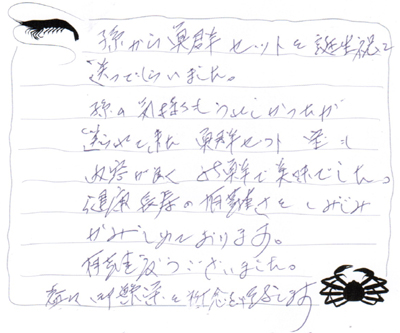 孫から魚群セットを誕生祝に
送ってもらいました。
孫の気持もうれしかったが
送られてきた魚群セット 量も
内容が良く 新鮮で美味でした。
健康長寿の有難さをしみじみ
かみしめております。
有難うございました。
益々 御繁栄を祈念を致します